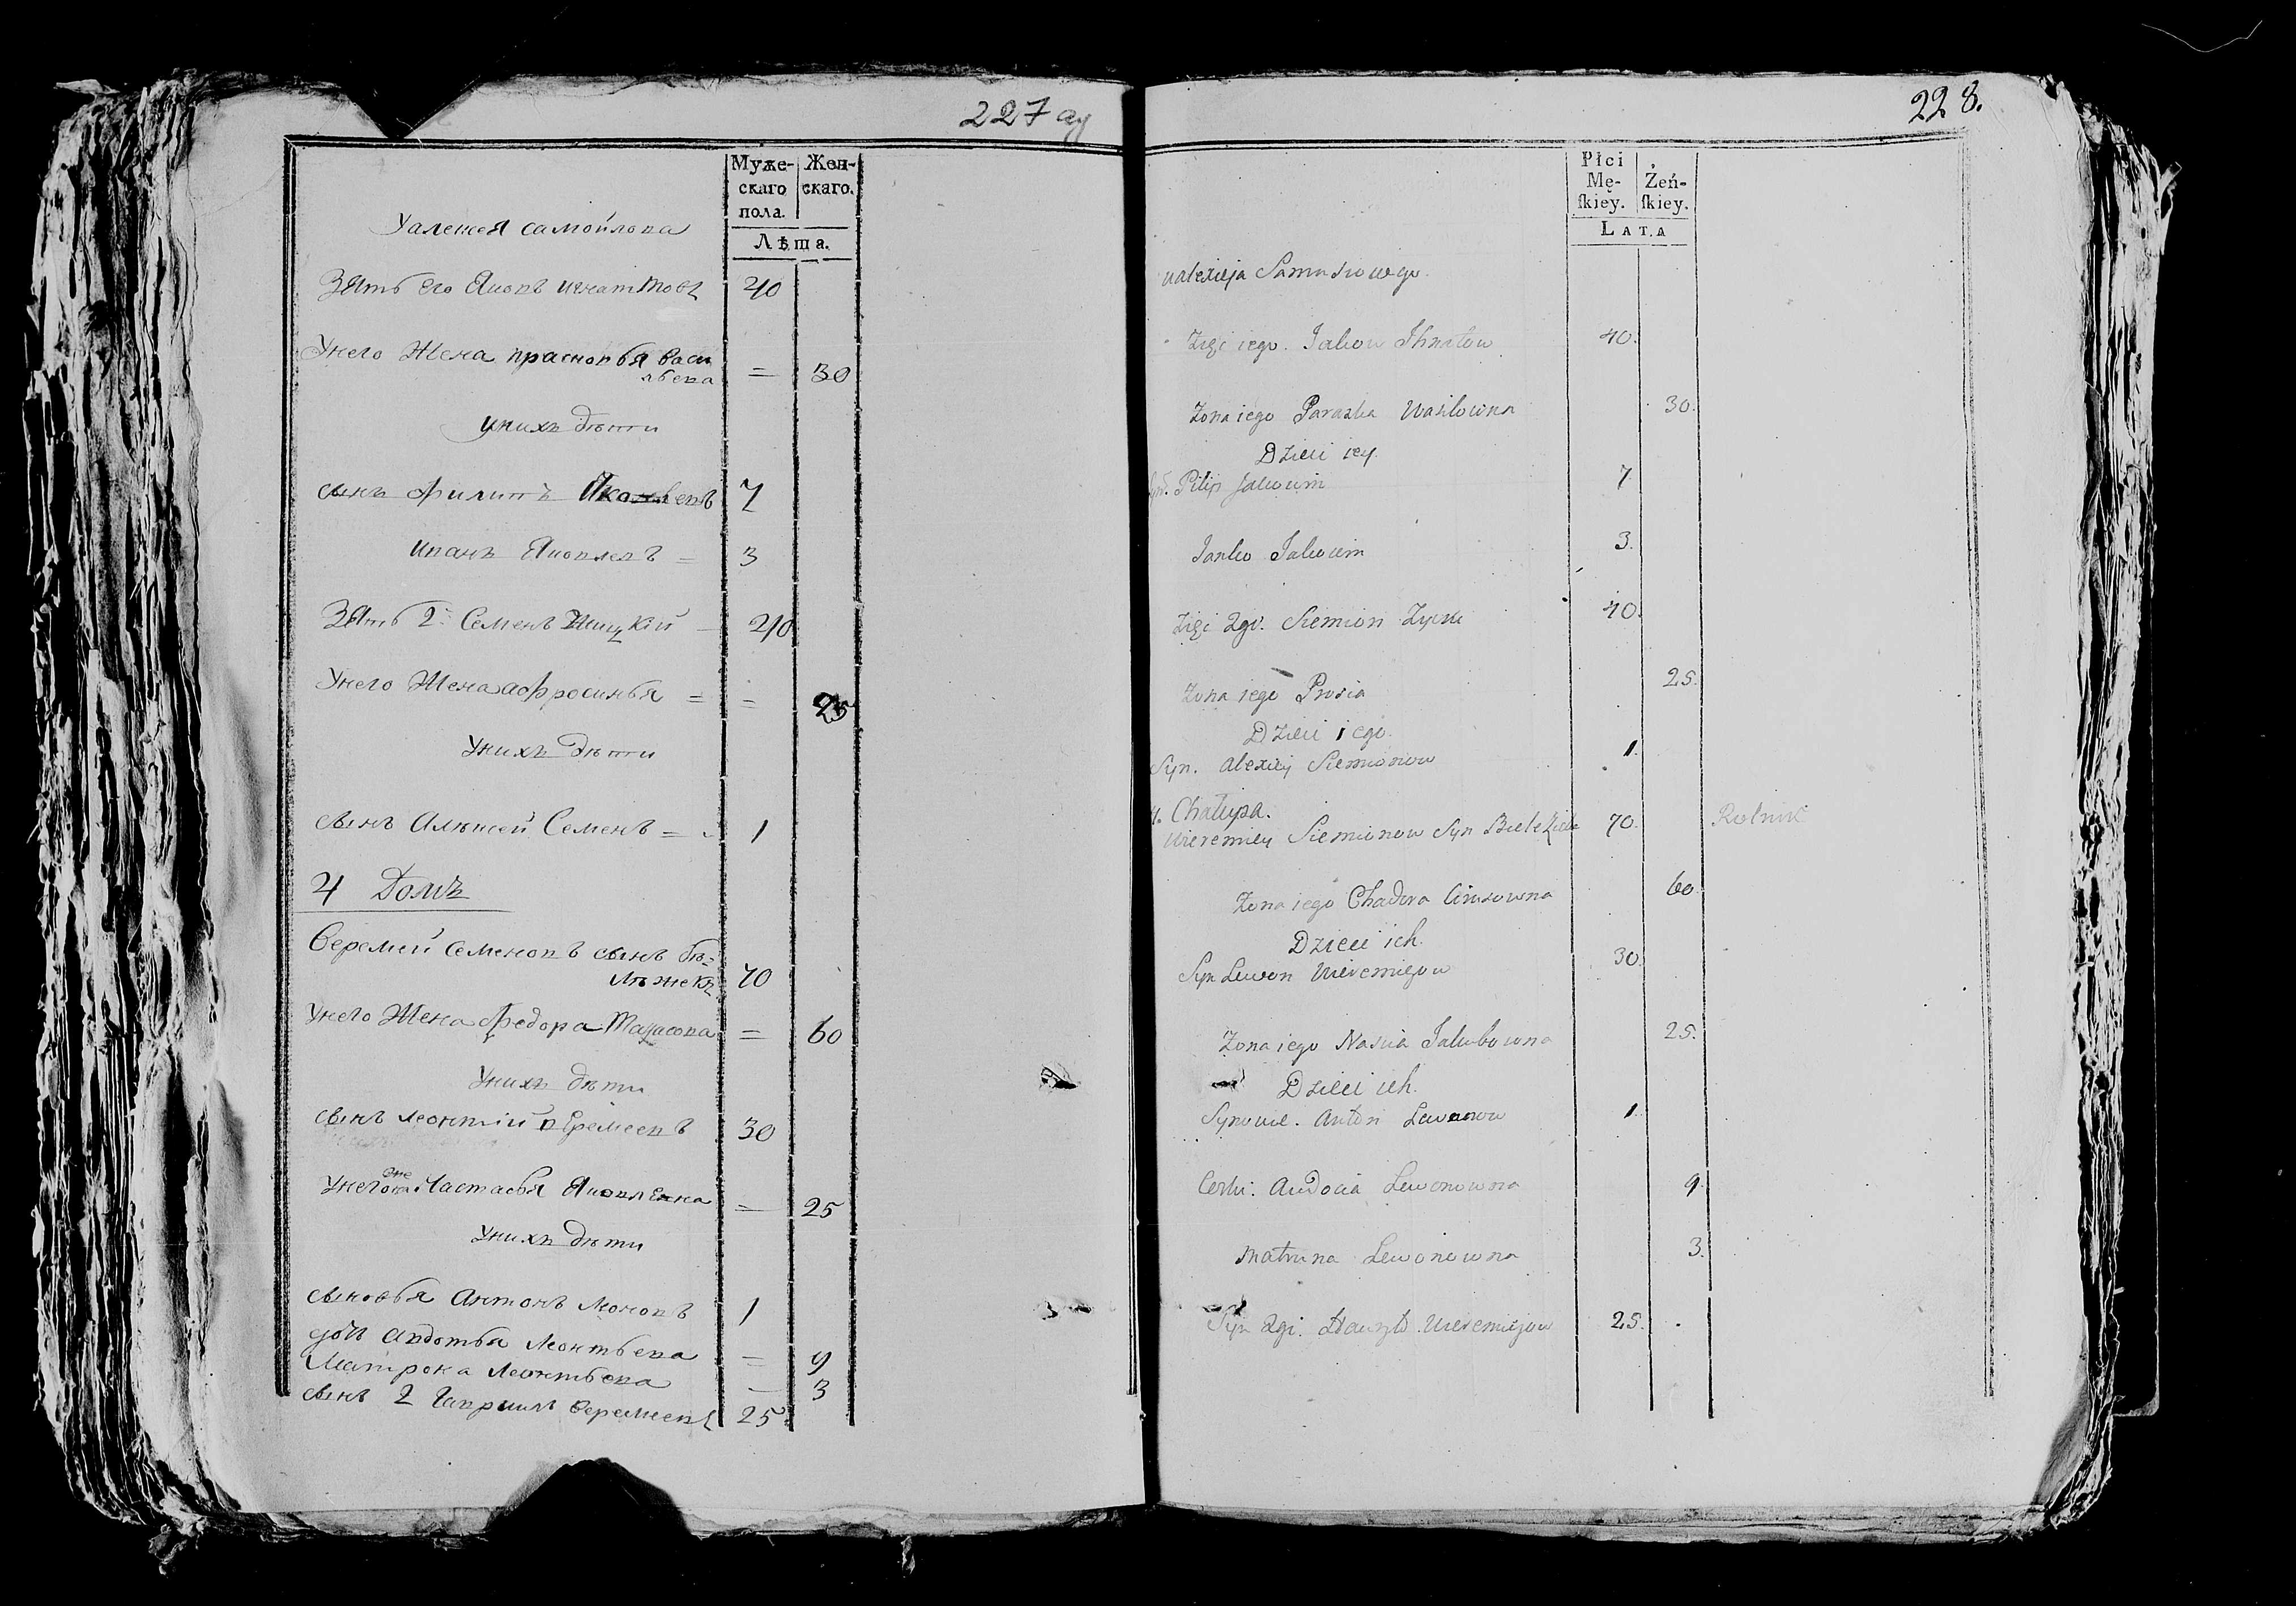 227 ау
Муже-
скаго
пола.
Жен-
скаго.
Лѣта.
Уалексея самойлова
Зять его Яковъ игнатовъ 40
Унего Жена прасковья васи
льева = 30
унихъ дѣти
сынъ филипъ Яковлевъ 7
иванъ Яковлевъ = 3
Зять 2й Семенъ Жицкий 40
Унего Жена афросинья = = 25
Унихъ дѣти
сынъ Алексей Семенъ = 1
4 Домъ
Веремей семеновъ сынъ бѣ=
70
Унего Жена федора = 60
Унихъ дѣти
сынъ леонтий веремеевъ 30
Унего жена Настасья Яковлевна = 25
Унихъ дѣти
сыновья антонъ леоновъ 1
авдотья леонтьева = 9
Матрона леонтьева — 3
сынъ 2 гаврилъ веремеевъ 25
228.
Płci
Mę-
ſkiey.
Żeń-
ſkiey.
LATA
ualexieja
Zięć iego. Jakow Ihnatow 40.
Zona iego Paraska Wasilowna 30.
Dzieci iey.
Syn. Pilip 7
Janko 3.
Zięć 2gi. Siemion Zycki 40.
Zona iego Prosia 25.
Dzieci iego.
Syn. Alexiey Siemionow 1.
4. Chałupa.
Wieremiey Siemionow Syn 70. Rolnik
Zona iego Chadora 60
Dzieci ich.
Syn Lewon Wieremiejow 30.
Zona iego Nascia Jakubowna 25.
Dzieci ich.
Synowie. Anton Lewonow 1.
Corki. Audocia Lewonowna 9.
Matruna Lewonowna 3.
Syn 2gi. Wieremiejow 25.